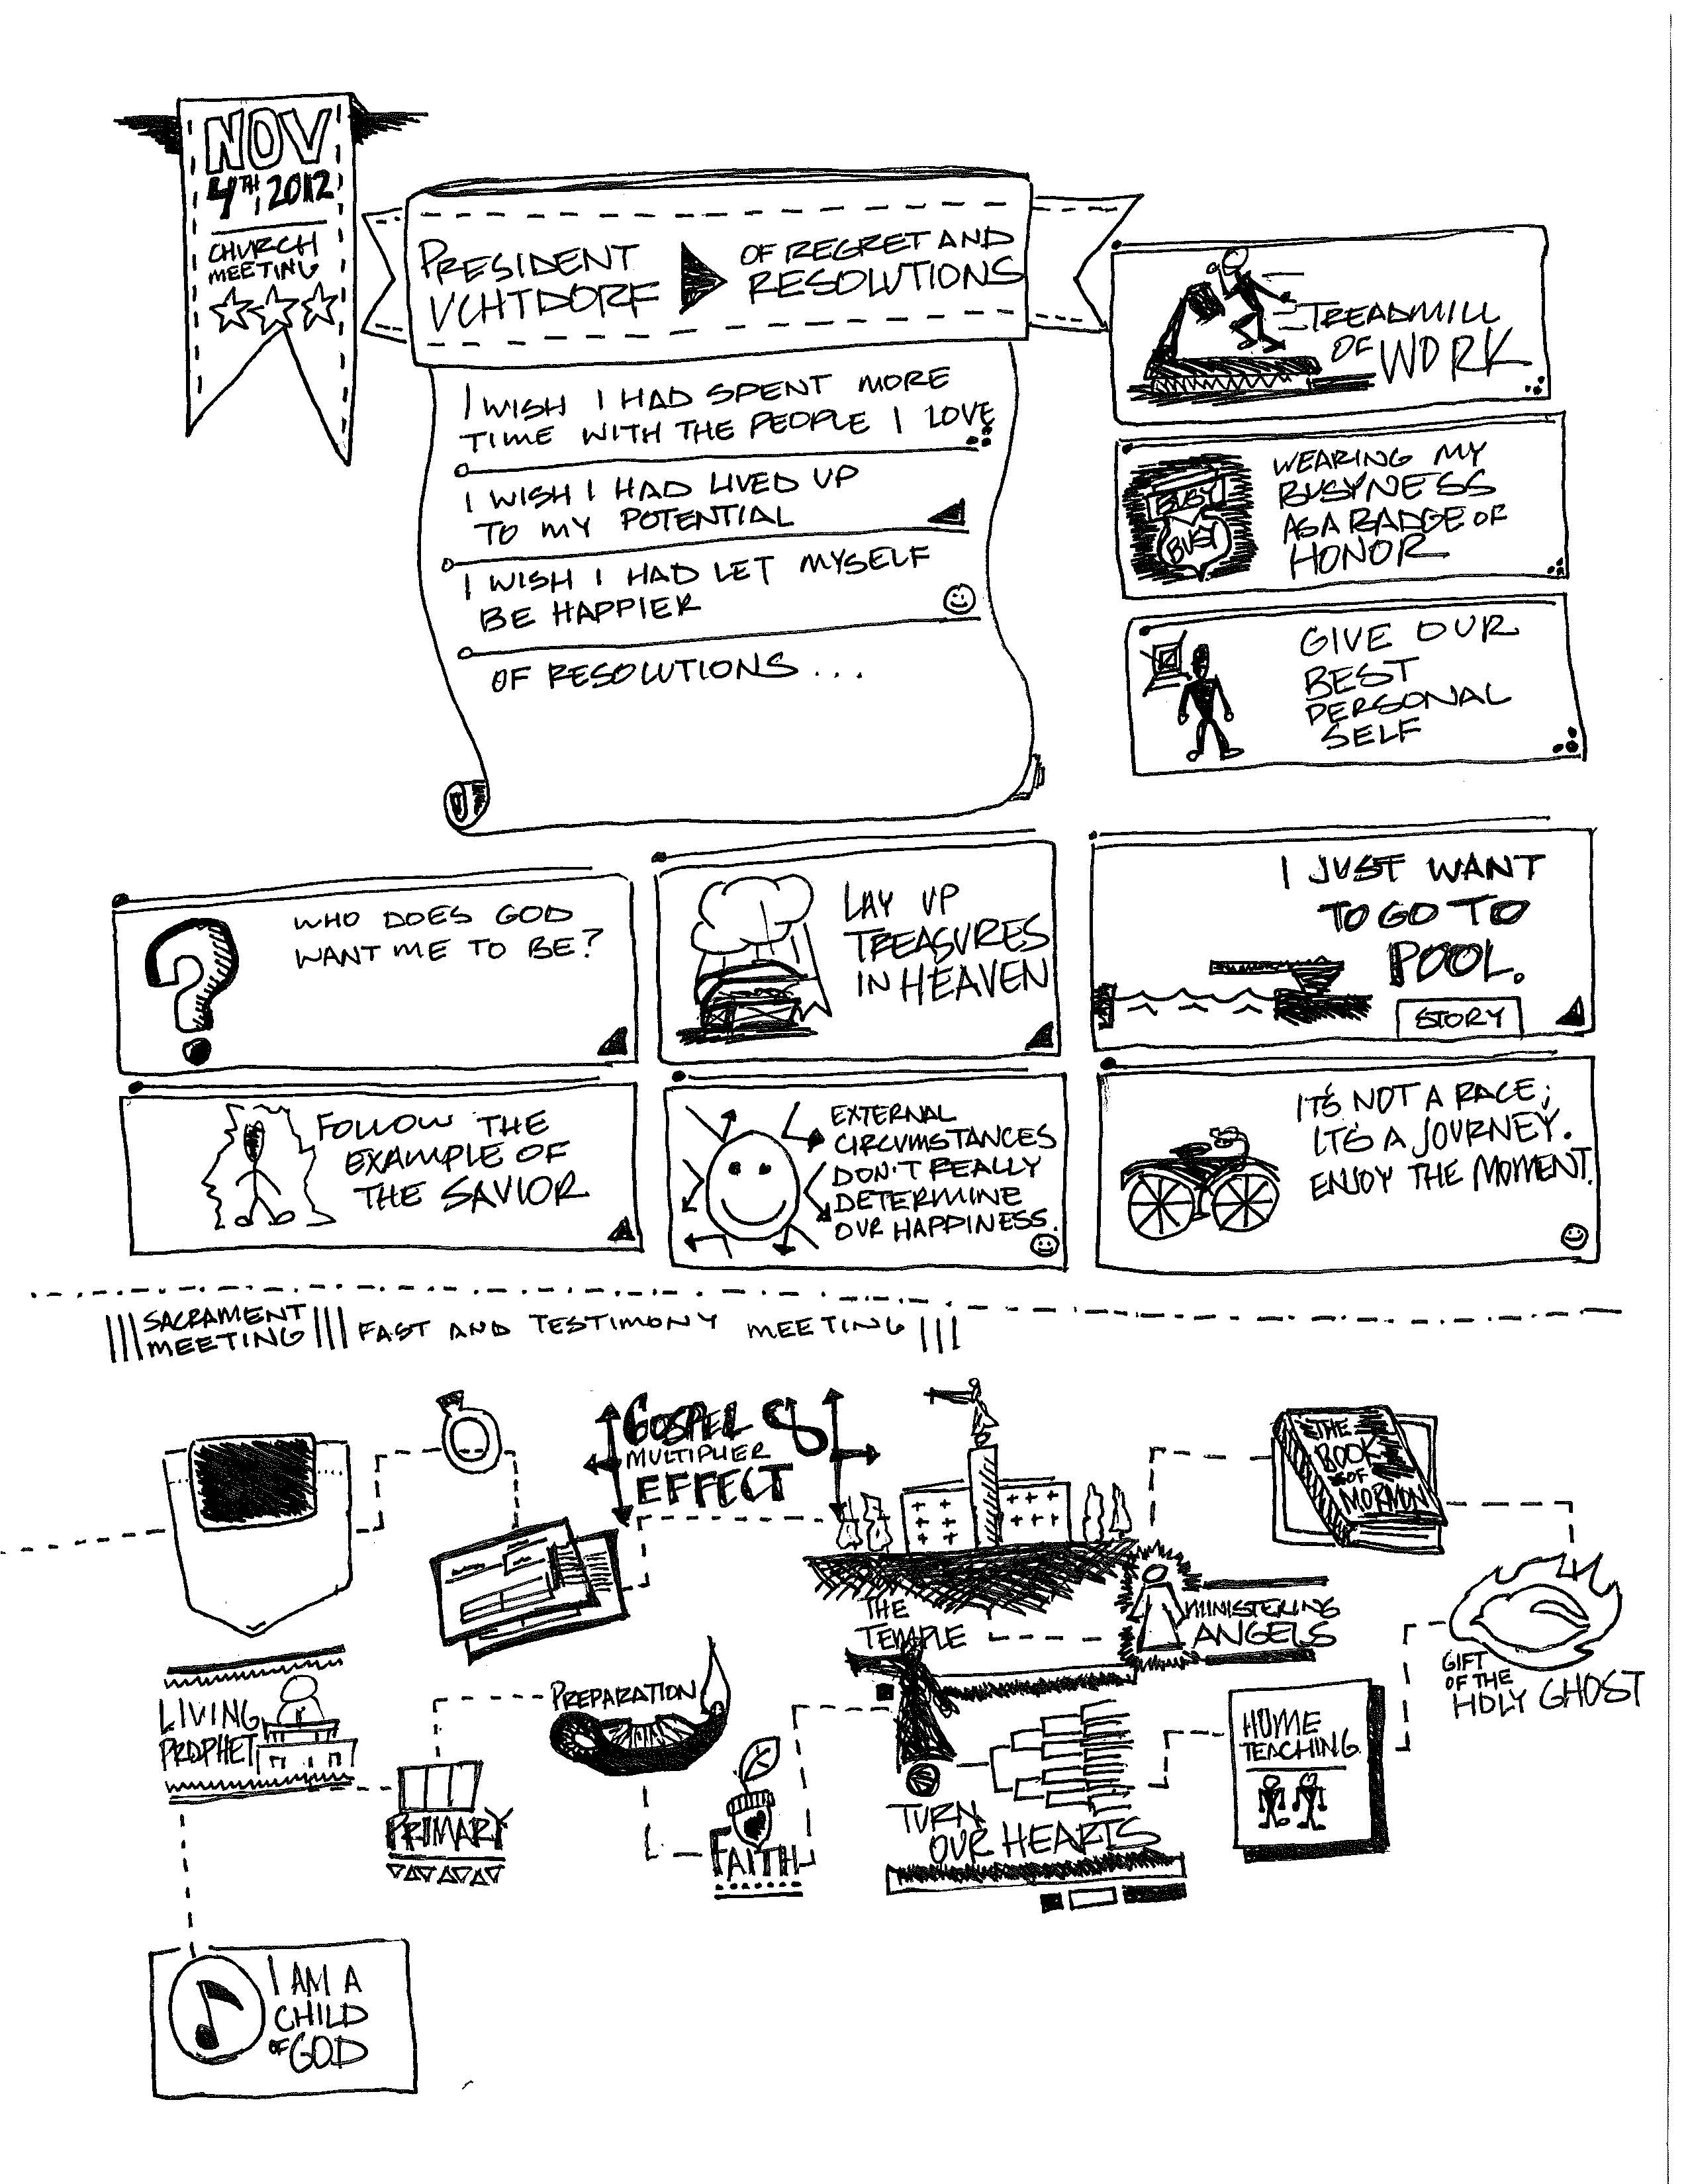 NOV
4TH, 2012
CHURCH
MEETING
PRESIDENT
UCHTDORF
OF REGRET AND
RESOLUTIONS
I WISH I HAD SPENT MORE
TIME WITH THE PEOPLE I LOVE
I WISH I HAD LIVED UP
TO MY POTENTIAL
I WISH I HAD LET MYSELF
BE HAPPIER
OF RESOLUTIONS...
TREADMILL
OF WORK
BUSY
BUSY
WEARING MY
BUSYNESS
AS A BADGE OF
HONOR
GIVE OUR
BEST
PERSONAL
SELF
WHO DOES GOD
WANT ME TO BE?
LAY UP
TREASURES
IN HEAVEN
I JUST WANT
TO GO TO
POOL.
STORY
FOLLOW THE
EXAMPLE OF
THE SAVIOR
EXTERNAL
CIRCUMSTANCES
DON'T REALLY
DETERMINE
OUR HAPPINESS.
IT'S NOT A RACE;
IT'S A JOURNEY.
ENJOY THE MOMENT.
SACRAMENT
MEETING
FAST AND TESTIMONY MEETING
GOSPEL
MULTIPLIER
EFFECT
THE
BOOK
OF
MORMON
THE
TEMPLE
MINISTERING
ANGELS
GIFT
OF THE
HOLY GHOST
LIVING
PROPHET
PREPARATION
PRIMARY
FAITH
TURN
OUR HEARTS
HOME
TEACHING
I AM A
CHILD
OF GOD